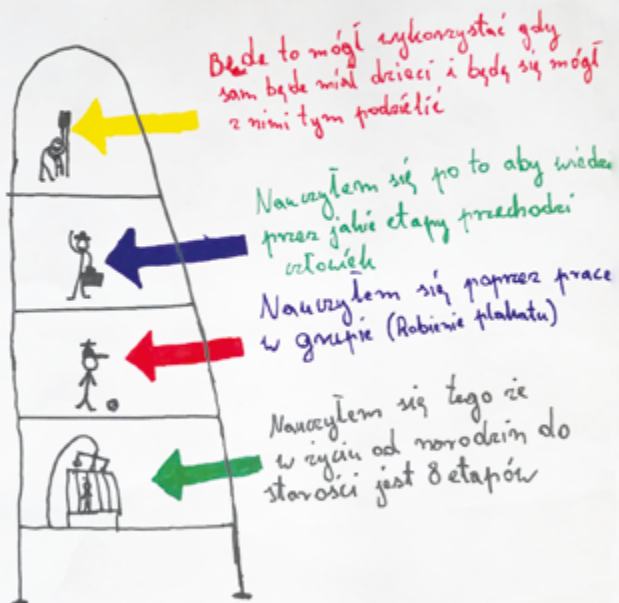 Będe to mógł wykorzystać gdy
sam będe miał dzieci i będę się mógł
z nimi tym podzielić
Nauczyłem się po to aby wiedzi
przez jakie etapy przechodzi
człowiek
Nauczyłem się poprzez prace
w grupie (Robienie plakatu)
Nauczyłem się tego że
w życiu od narodzin do
starości jest 8 etapów